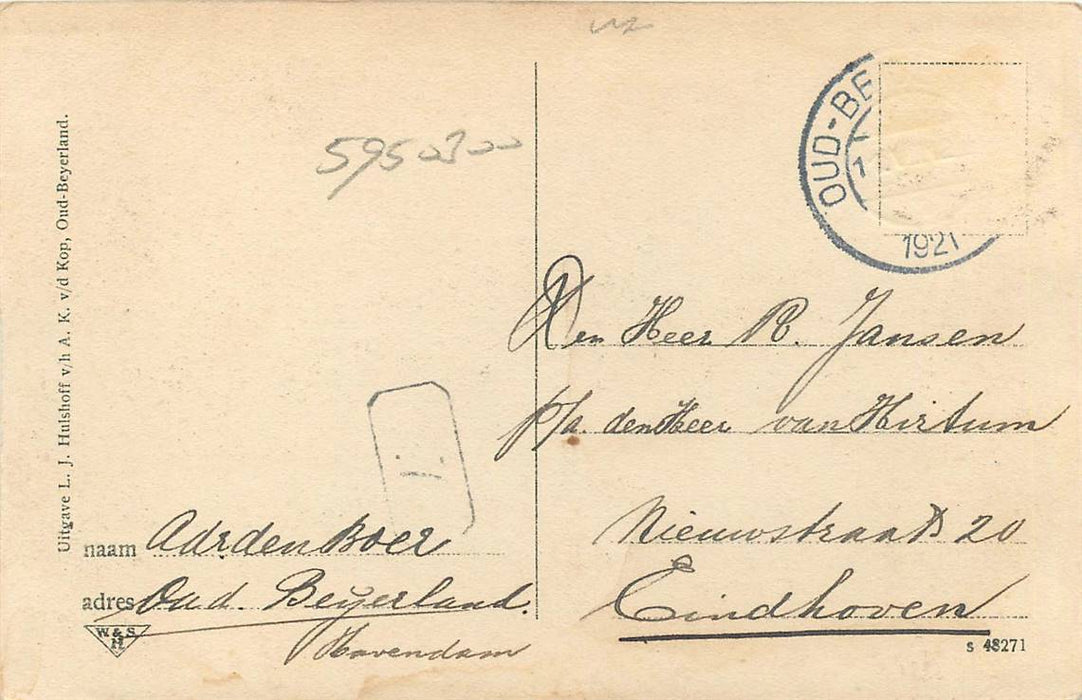 Uitgave L. J. Hulshoff v/h A. K. v/d Kop, Oud-Beyerland.
OUD-BE
1
1921
Den Heer R. Jansen
p/a. den Heer van Hirtum
Nieuwstraat 20
Eindhoven
naam Adr den Boer
adres Oud. Beyerland.
Havendam
W. & S.
H
S 48271